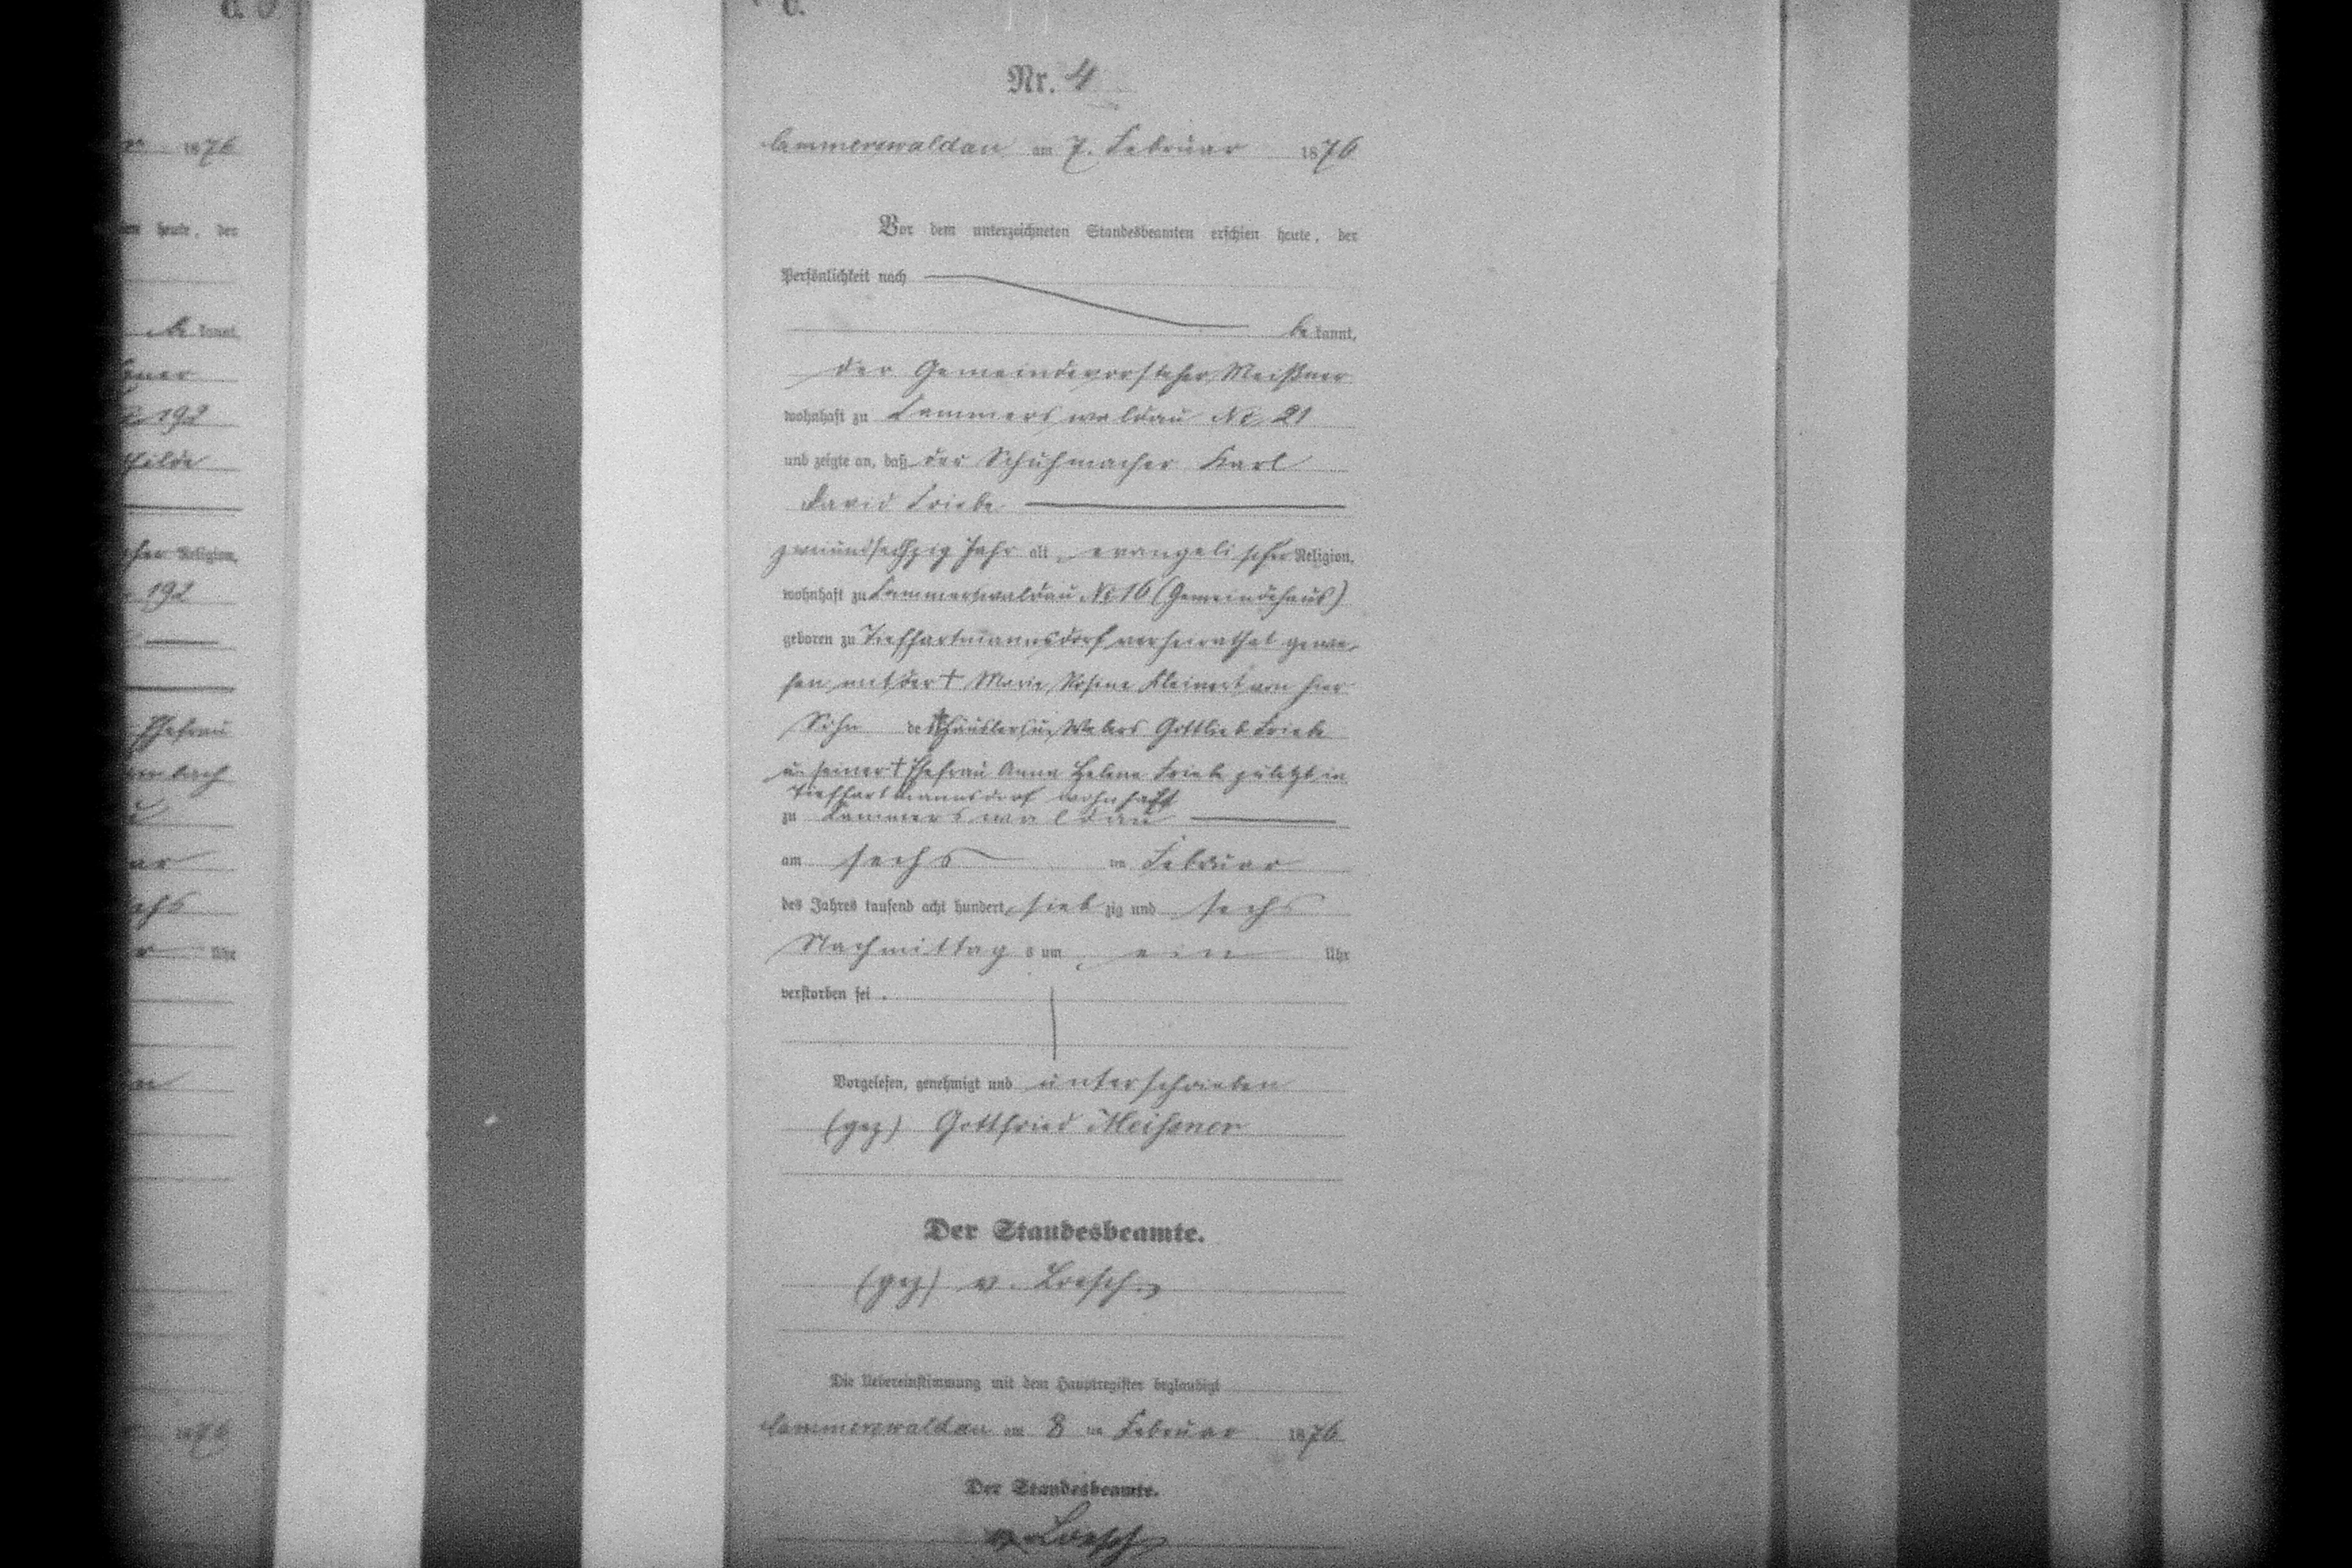 C.
Nr. 4
Cammerswaldau am 7. Februar 1876
Vor dem unterzeichneten Standesbeamten erschien heute, der
Persönlichkeit nach
be kannt,
der Gemeindevorsteher Meißner
wohnhaft zu Kammerswaldau No 21
und zeigte an, daß der Schuhmacher Karl
David Friebe
zweiundsechszig Jahr alt, evangelischer Religion,
wohnhaft zu Kammerswaldau No 16 (Gemeindehaus)
geboren zu Tiefhartmannsdorf verheirathet gewe-
sen mit der † Marie Rosine Kleinert von hier
Sohn des † Häuslers u. Webers Gottlieb Friebe
u. seiner † Ehefrau Anna Helena Friebe zuletzt in
Tiefhartmannsdorf wohnhaft
zu Kammerswaldau
am sechs ten Februar
des Jahres tausend acht hundert sieb zig und sechs
Nachmittag s um ein Uhr
verstorben sei.
Vorgelesen, genehmigt und unterschrieben
(gez) Gottfried Meißner
Der Standesbeamte.
(gez) v. Loesch
Die Uebereinstimmung mit dem Hauptregister beglaubigt
Cammerswaldau am 8 ten Februar 1876
Der Standesbeamte.
v. Loesch
1876
heute, der
be kannt,
192
Religion,
192
Ehefrau
Uhr
1876